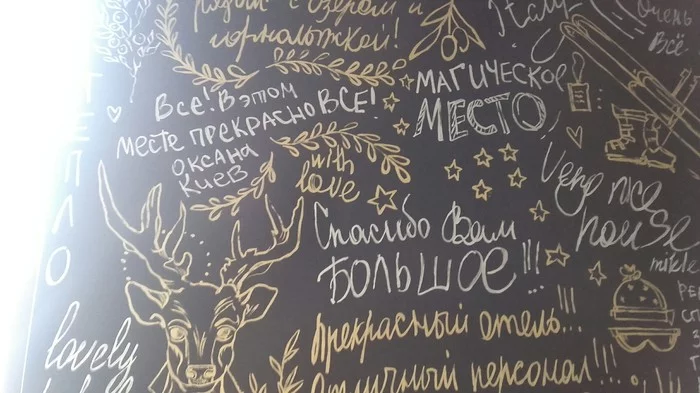 рядом с озером и
горнолыжкой!
Italy
Очень
Всё
Все! В этом
месте прекрасно ВСЕ!
Оксана
Киев
МАГИЧЕСКОЕ
МЕСТО
ТЕПЛО
with
love
Very nice
house
mikle
Спасибо Вам
БОЛЬШОЕ!!!
Прекрасный отель!!!
Отличный персонал!!!
lovely